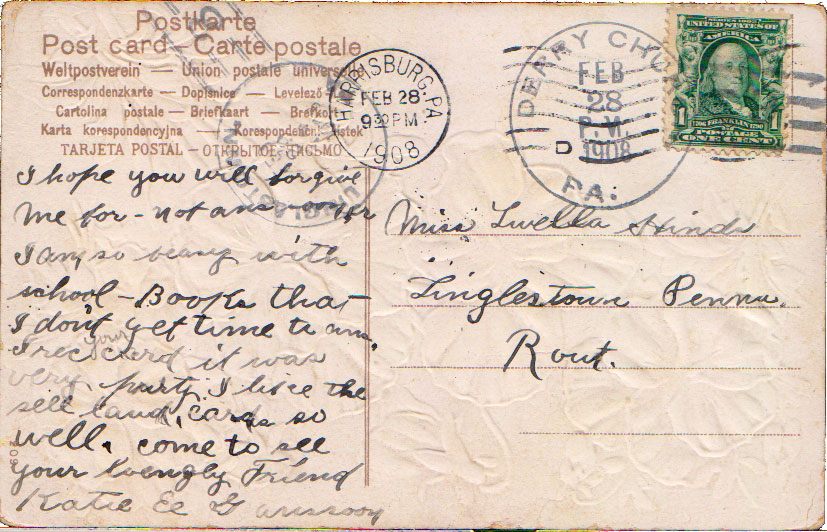 Postkarte
Post card — Carte postale
Weltpostverein — Union postale universe
Correspondenzkarte — Dopisnice — Levelező
Cartolina postale — Briefkaart — Brefkort
Karta korespondencyjna — Korespondenčni listek
TARJETA POSTAL — ОТКРЫТОЕ ПИСЬМО
HARRISBURG, PA.
FEB 28
9 30 PM
1908
DERRY CHU
FEB
28
P.M.
D 1908
PA.
SERIES 1902
UNITED STATES OF AMERICA
1 1706 FRANKLIN 1790 1
POSTAGE
ONE CENT
I hope you will forgive
me for - not ans your
I am, so beasy with
school - Books that
I don't get time to ans.
I rec your card it was
very purty I like the
sell land, cards so
well. come to see
your lovengly Friend
Katie Ee
Miss Luella Hinds
Linglestown Penna.
Rout.
209